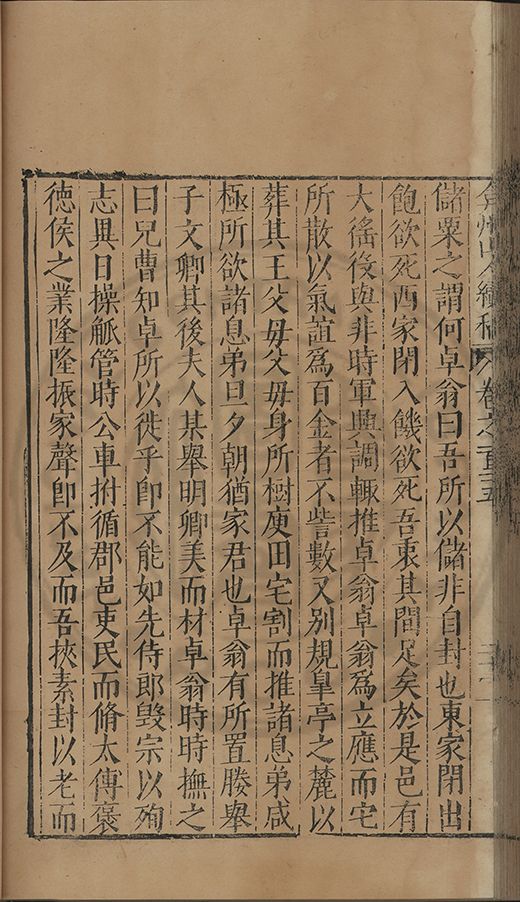 弇州山人續稿 卷之一百五
儲粟之謂何卓翁曰吾所以儲非自封也東家閉出
飽欲死西家閉入饑欲死吾東其間足矣於是邑有
大徭役與非時軍興調輒推卓翁卓翁爲立應而宅
所散以氣誼爲百金者不訾數又別規臯亭之麓以
葬其王父母父母身所樹庾田宅割而推諸息弟咸
極所欲諸息弟旦夕朝猶家君也卓翁有所置媵舉
子文卿其後夫人某舉明卿美而材卓翁時時撫之
曰兄曹知卓所以徙乎卽不能如先侍郎毀宗以殉
志異日操觚管時公車拊循郡邑吏民而脩太傅褒
德侯之業隆隆振家聲卽不及而吾挾素封以老而